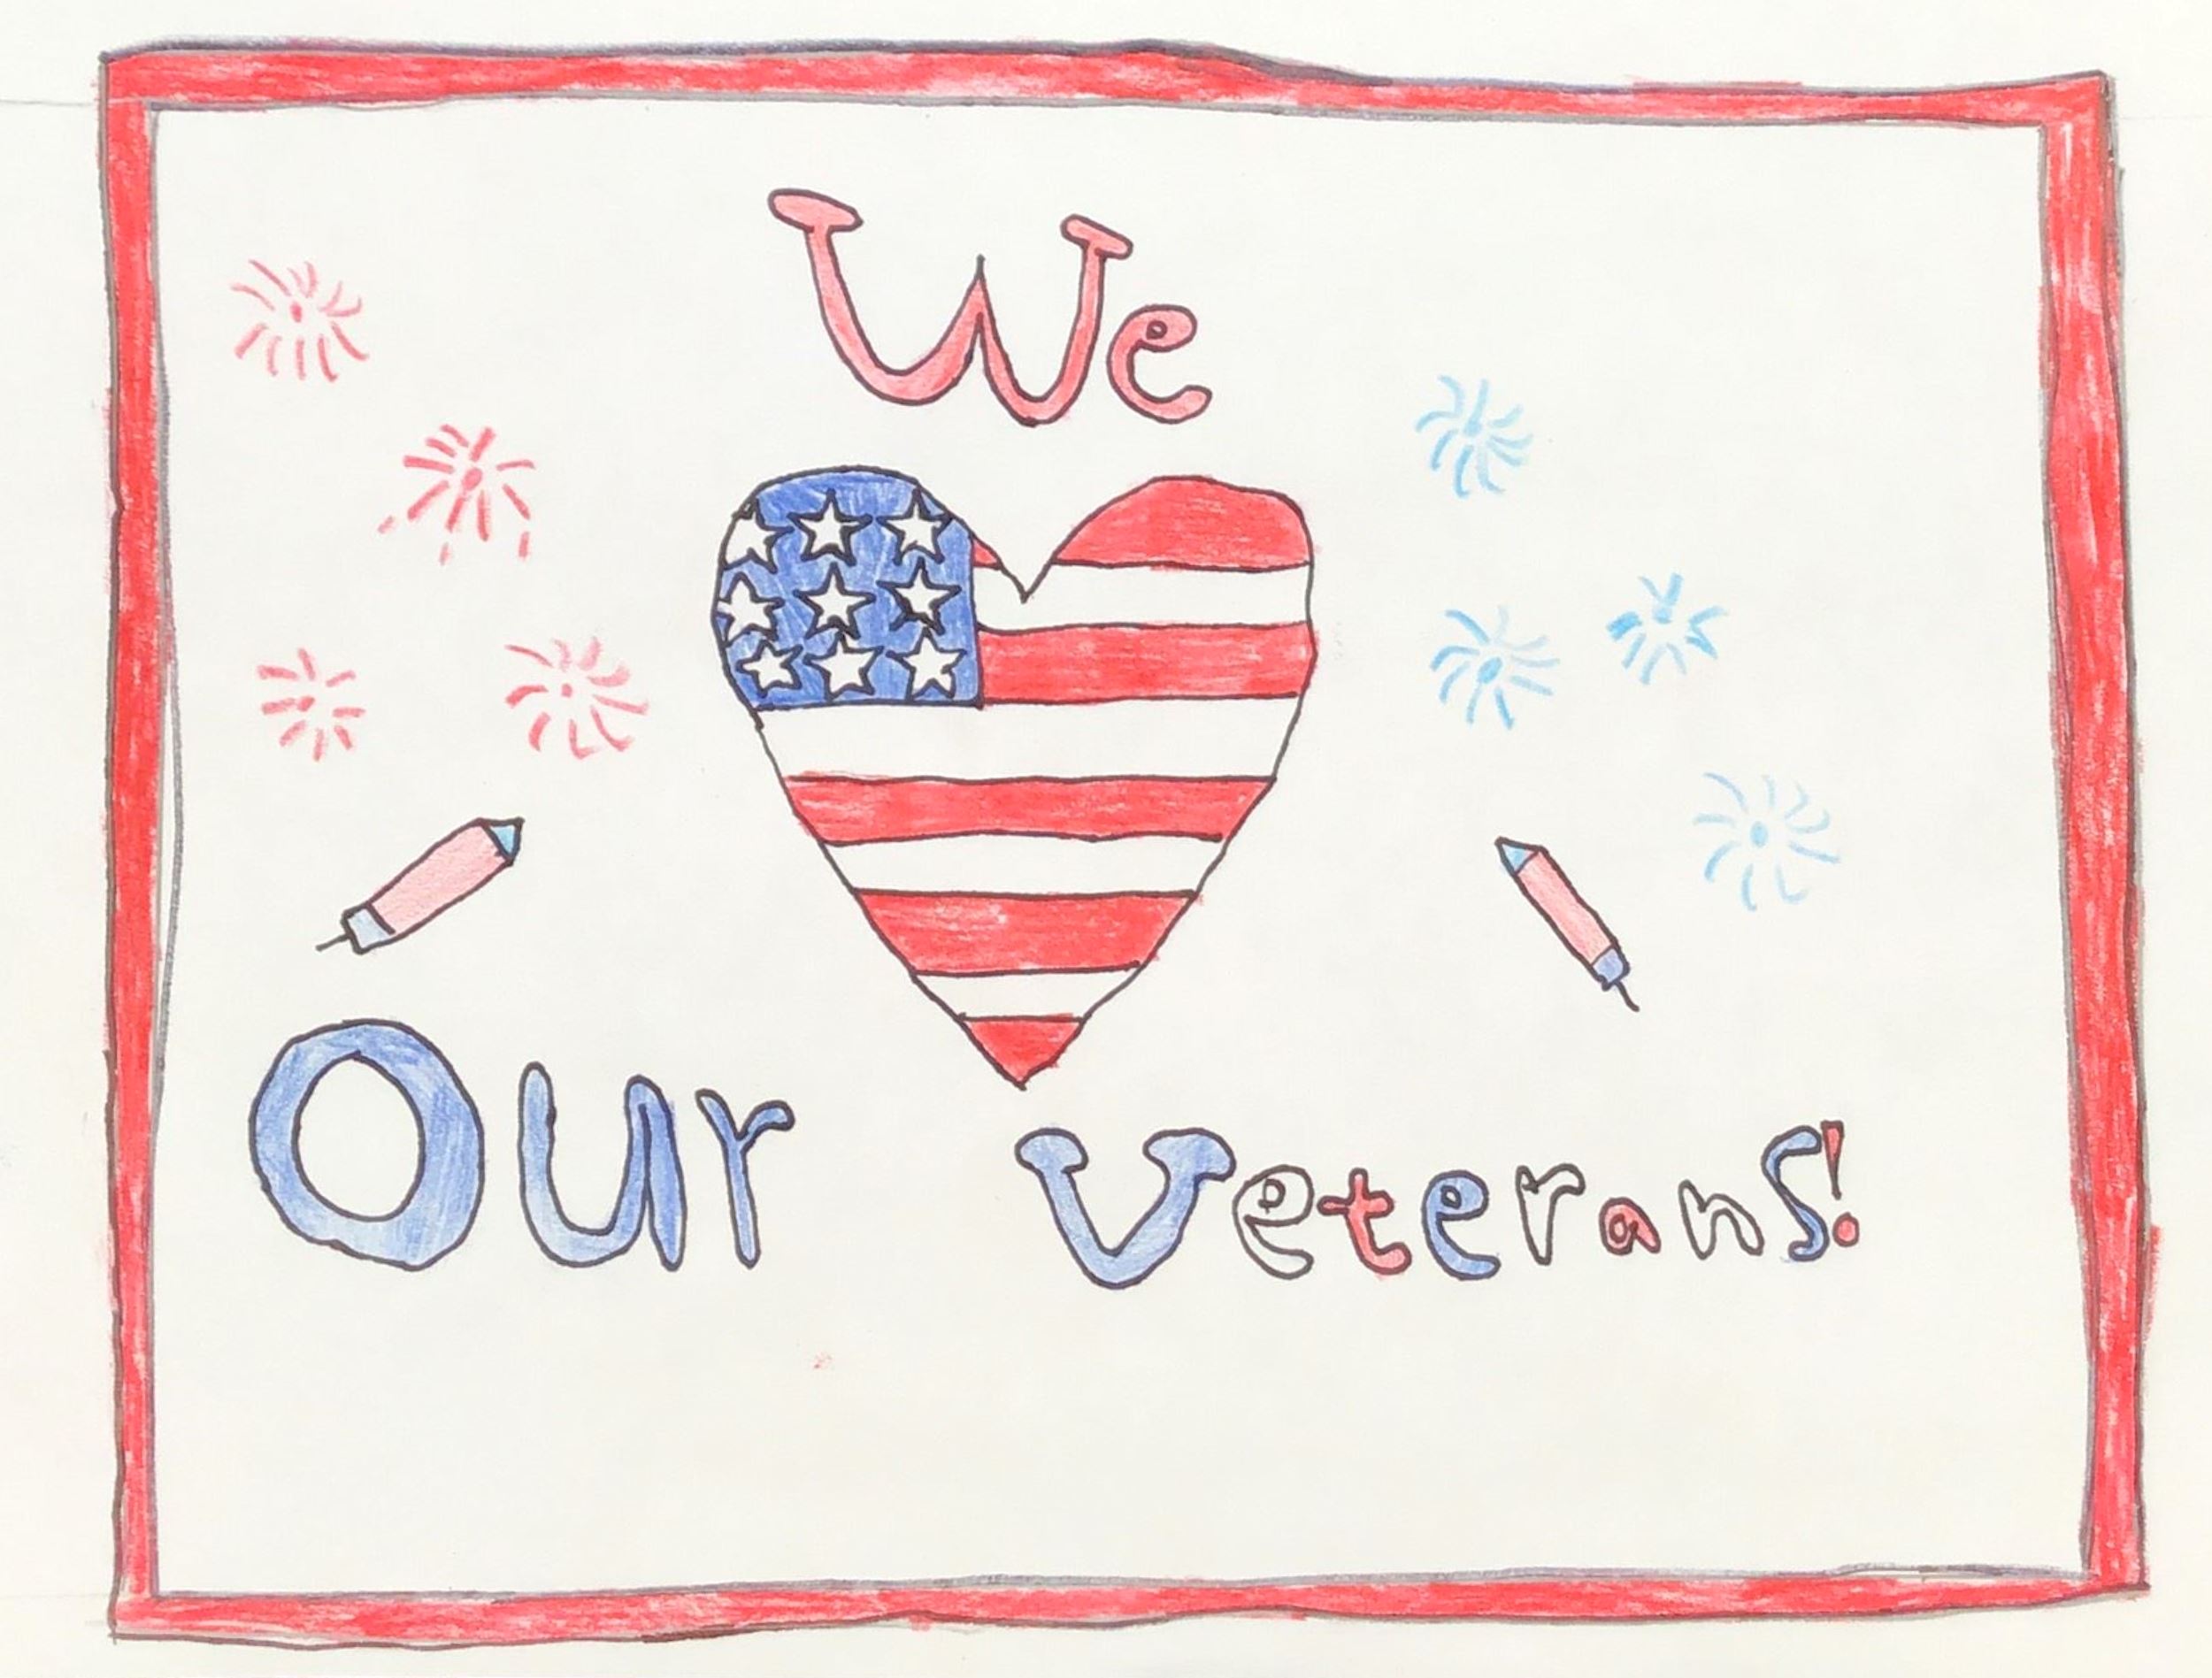 We
Our Veterans!